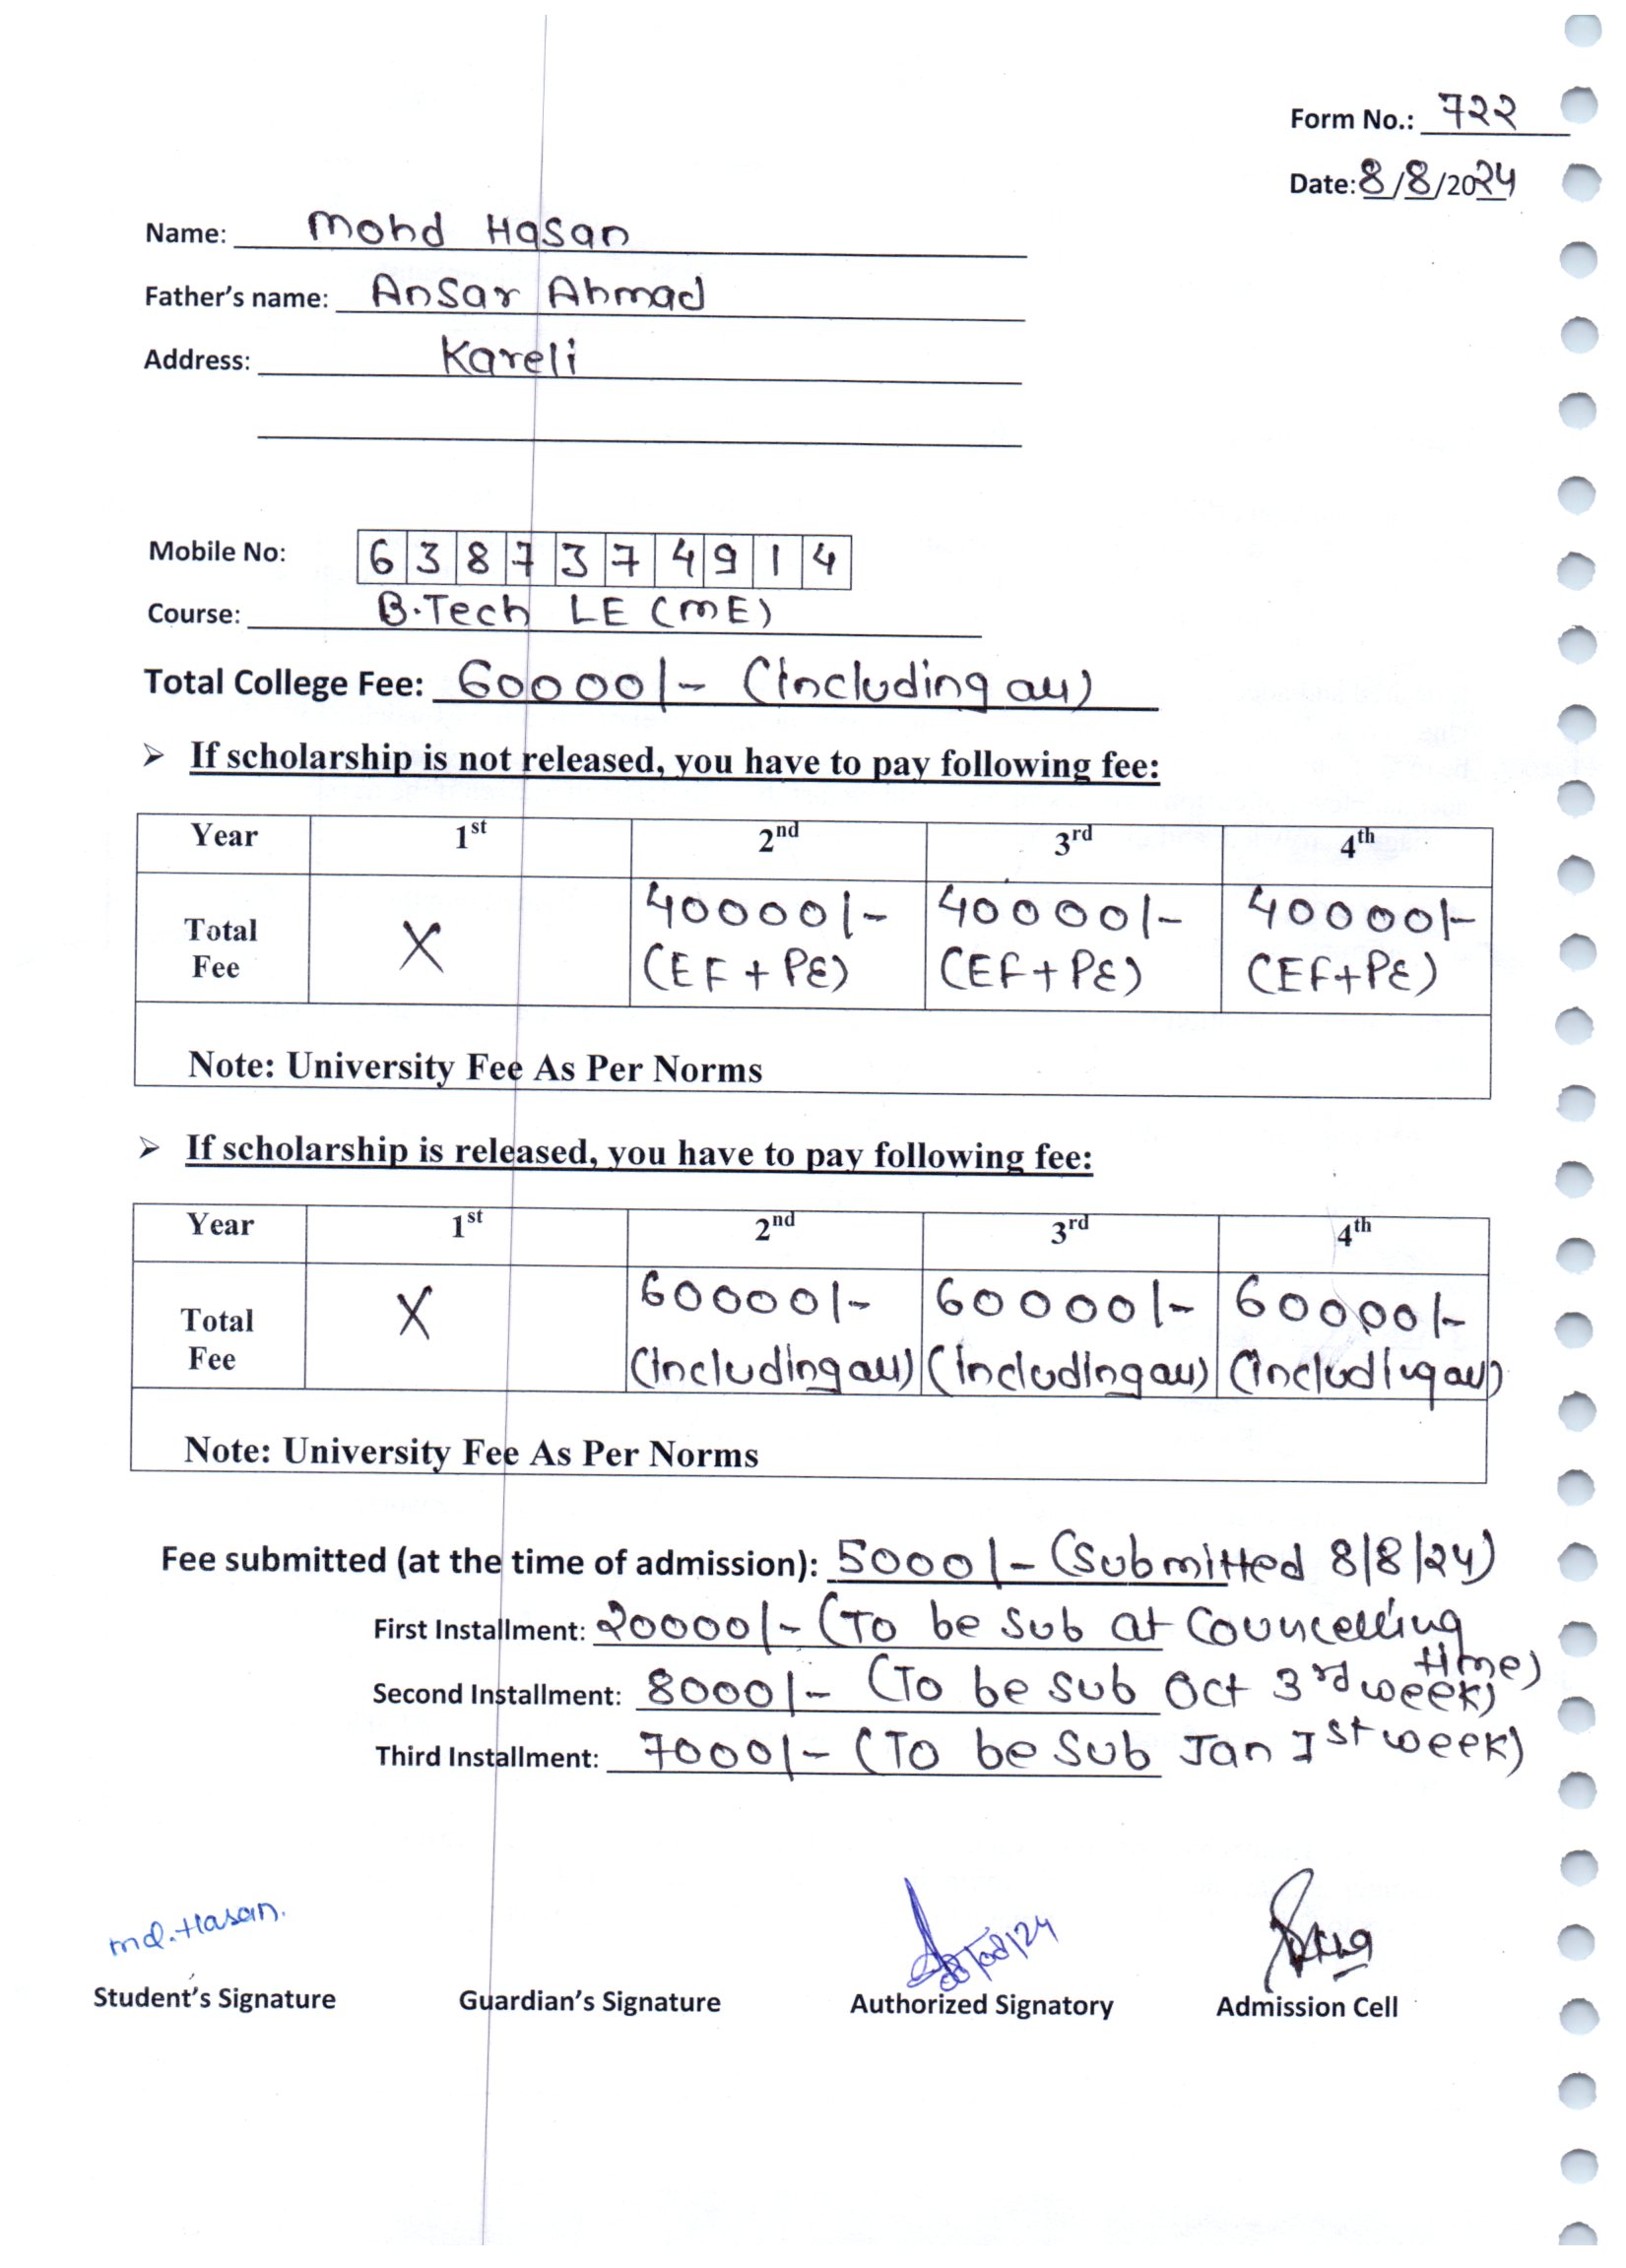 Form No.: 722
Date: 8/8/2024
Name: Mohd Hasan
Father's name: Ansar Ahmad
Address: Kareli
Mobile No: 6 3 8 7 3 7 4 9 1 4
Course: B.Tech LE (ME)
Total College Fee: 60000/- (Including all)
➢ If scholarship is not released, you have to pay following fee:
Year 1st 2nd 3rd 4th
Total Fee X 40000/- (EF + PE) 40000/- (EF + PE) 40000/- (EF+PE)
Note: University Fee As Per Norms
➢ If scholarship is released, you have to pay following fee:
Year 1st 2nd 3rd 4th
Total Fee X 60000/- (Including all) 60000/- (Including all) 60000/- (Including all)
Note: University Fee As Per Norms
Fee submitted (at the time of admission): 5000/- (Submitted 8/8/24)
First Installment: 20000/- (To be sub at Councelling time)
Second Installment: 8000/- (To be sub Oct 3rd week)
Third Installment: 7000/- (To be sub Jan Ist week)
md. Hasan.
08/08/24
Student's Signature Guardian's Signature Authorized Signatory Admission Cell